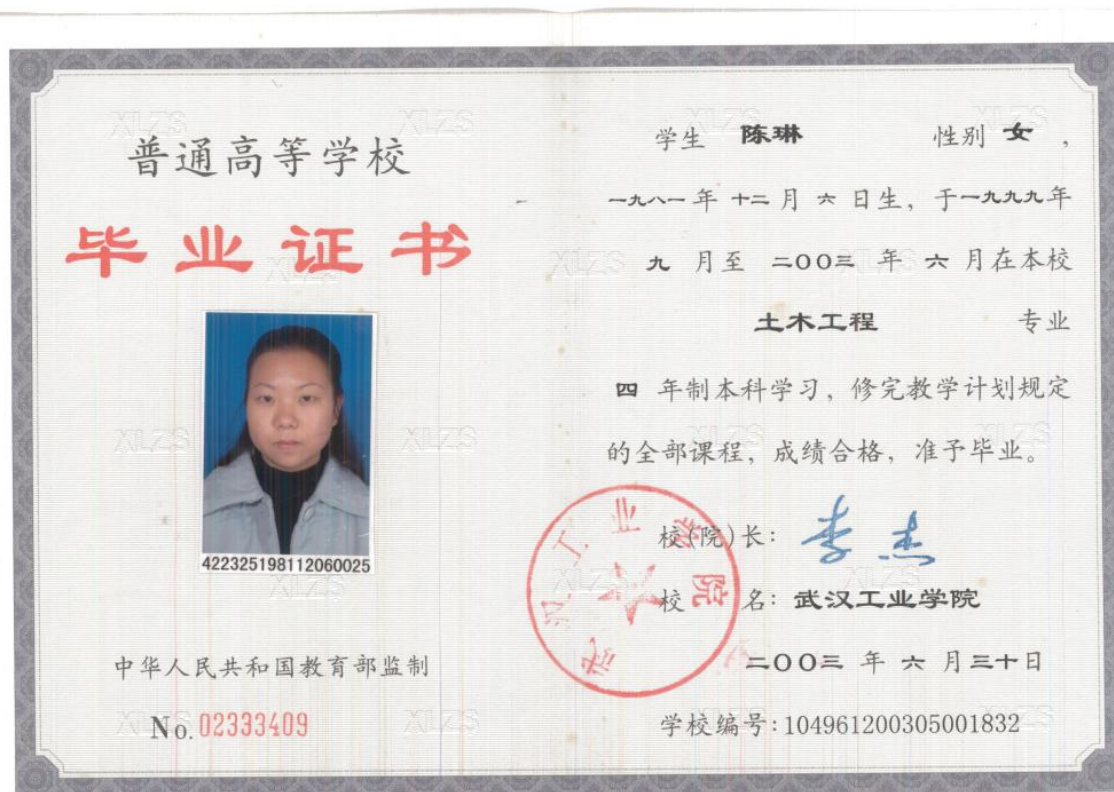 普通高等学校
毕业证书
422325198112060025
中华人民共和国教育部监制
No. 02333409
学生 陈琳 性别 女，
一九八一年 十二月 六 日生，于一九九九年
九 月至 二00三 年 六 月在本校
土木工程 专业
四 年制本科学习，修完教学计划规定
的全部课程，成绩合格，准予毕业。
校(院)长：李杰
校 名：武汉工业学院
武汉工业学院
二00三 年 六 月三十日
学校编号：104961200305001832
XLZS